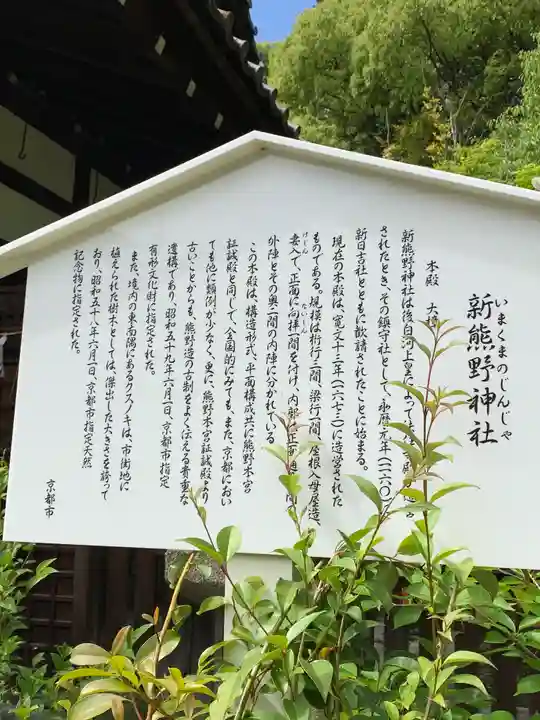 いまくまのじんじゃ
新熊野神社
本殿 大
新熊野神社は後白河上皇によって法住
されたとき、その鎮守社として、永暦元年(一一六〇)
新日吉社とともに勧請されたことに始まる。
現在の本殿は、寛文十三年(一六七三)に造営された
ものである。規模は桁行三間、梁行二間、屋根入母屋造、
妻入で、正面に向拝一間を付け、内部は正面
げじん ないじん
外陣とその奥二間の内陣に分かれている。
この本殿は、構造形式、平面構成共に熊野本宮
証誠殿と同じで、全国的にみても、また、京都におい
ても他に類例が少なく、更に、熊野本宮証誠殿より
古いことからも、熊野造の古制をよく伝える貴重な
遺構であり、昭和五十九年六月一日、京都市指定
有形文化財に指定された。
また、境内の東南隅にあるクスノキは、市街地に
植えられた樹木としては、傑出した大きさを誇って
おり、昭和五十八年六月一日、京都市指定天然
記念物に指定された。
京都市